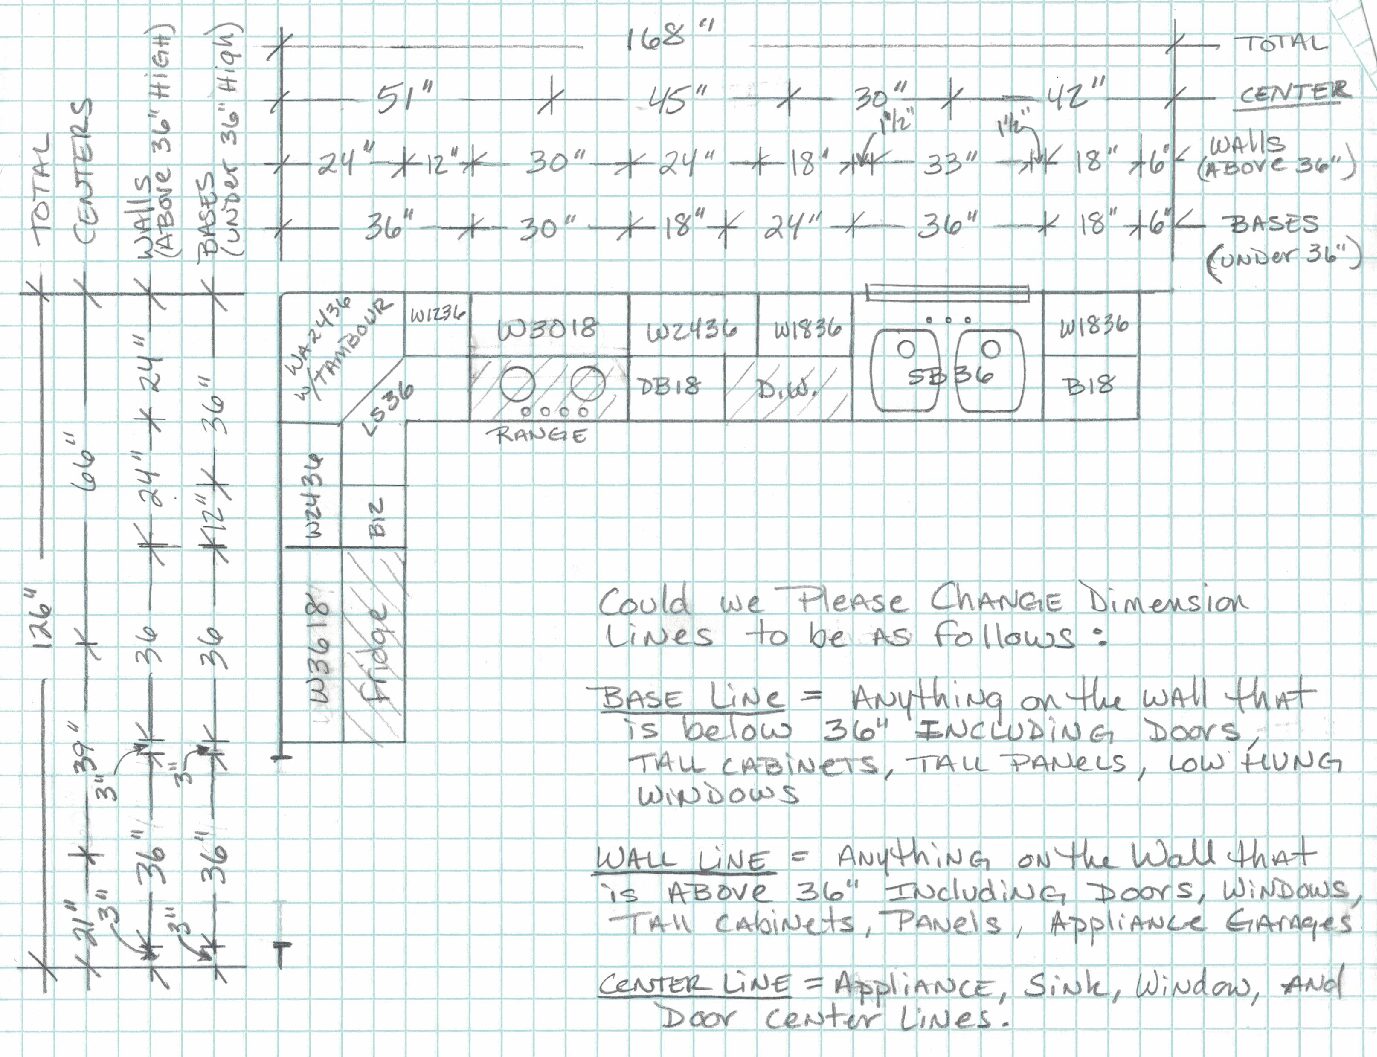 168" TOTAL
51" 45" 30" 42" CENTER
1½" 1½"
24" 12" 30" 24" 18" 33" 18" 6" WALLS
(ABOVE 36")
36" 30" 18" 24" 36" 18" 6" BASES
(UNDER 36")
TOTAL
CENTERS
WALLS
(ABOVE 36" HIGH)
BASES
(UNDER 36" High)
126"
66" 39" 21"
24" 24" 36 3" 36" 3"
36" 12" 36 3" 36" 3"
WA2436
W/TAMBOUR
LS36
W1236
W3018
W2436
W1836
W1836
DB18
D.W.
SB36
B18
RANGE
W2436
B12
W3618
fridge
Could we Please CHANGE Dimension
Lines to be AS follows:
BASE LINE = Anything on the wall that
is below 36" INCLUDING DOORS,
TALL CABINETS, TALL PANELS, LOW HUNG
WINDOWS
WALL LINE = ANYthING on the Wall that
is ABOVE 36" Including Doors, WINDOWS,
TAll Cabinets, PANels, Appliance Garages
CENTER LINE = Appliance, Sink, Window, ANd
Door center Lines.